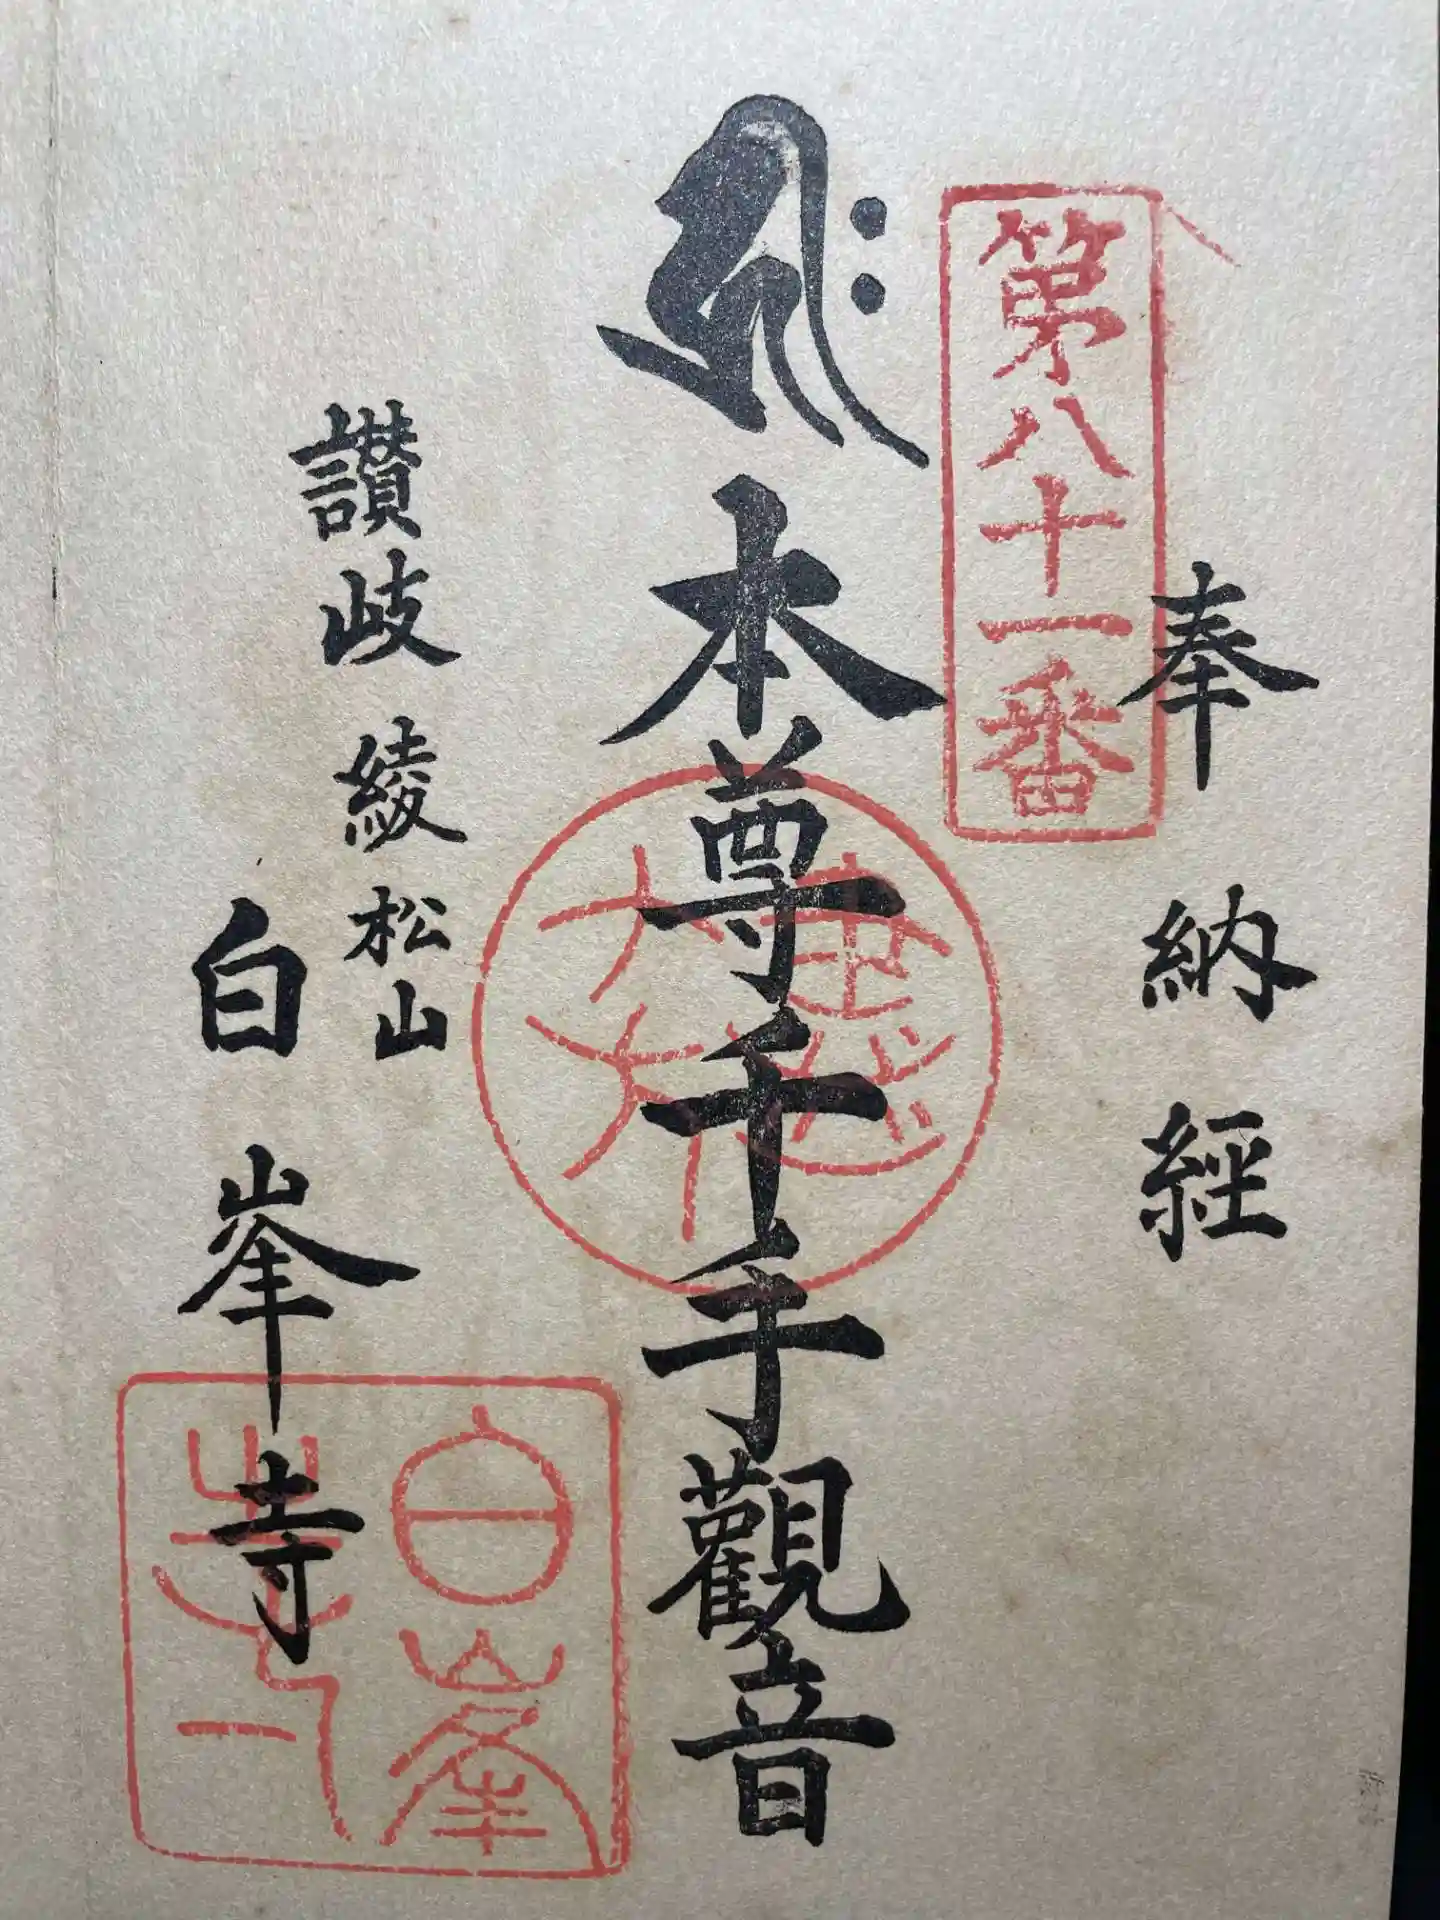 奉納經
第八十一番
𑖮𑖿𑖨𑖱𑖾
本尊千手觀音
讃岐綾松山
白峯寺
白峯
寺印